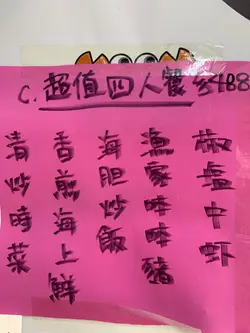 C. 超值四人餐 $488
椒塩中虾
漁家豬
海胆炒飯
香煎海上鮮
青炒時菜